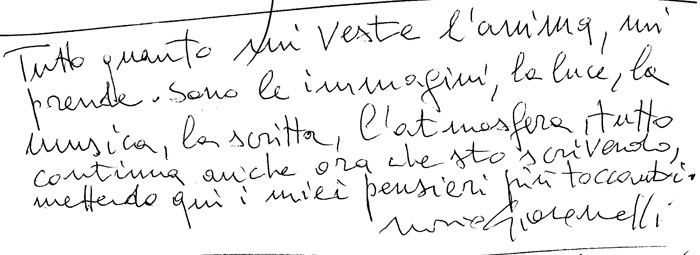 Tutto quanto mi veste l'anima, mi
prende. Sono le immagini, la luce, la
musica, la scritta, l'atmosfera, tutto
continua anche ora che sto scrivendo,
mettendo qui i miei pensieri più toccanti.